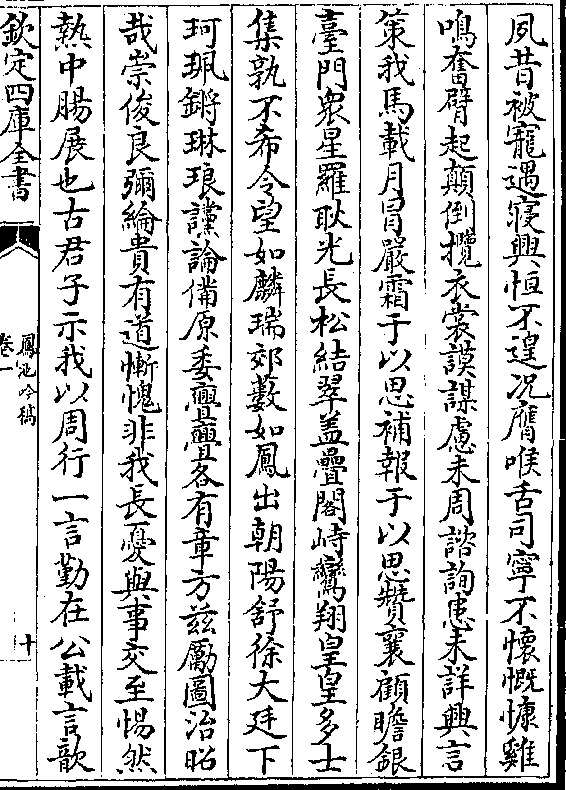 夙昔被寵遇寢興恒不遑况膺喉舌司寧不懷慨慷雞
鳴奮臂起顛倒攬衣裳謨謀慮未周諮詢患未詳興言
策我馬載月冒嚴霜于以思補報于以思贊襄顧瞻銀
臺門衆星羅耿光長松結翠盖疊閣峙鸞翔皇皇多士
集孰不希令望如麟瑞郊藪如鳳出朝陽舒徐大廷下
珂珮鏘琳琅讜論備原委亹亹各有章方兹勵圖治昭
哉崇俊良彌綸貴有道慚愧非我長憂與事交至惕然
熱中腸展也古君子示我以周行一言勤在公載言歆
欽定四庫全書
鳳池吟稿
卷一
十